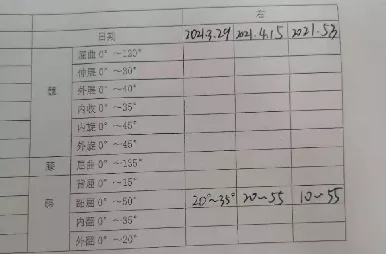 右
日期 2021.3.29 2021.4.15 2021.5.8
髋 屈曲 0°~120°
伸展 0°~30°
外展 0°~40°
内收 0°~35°
内旋 0°~45°
外旋 0°~45°
膝 屈曲 0°~135°
背屈 0°~15°
踝 跖屈 0°~50° 20°~35° 20~55 10~55
内翻 0°~35°
外翻 0°~20°